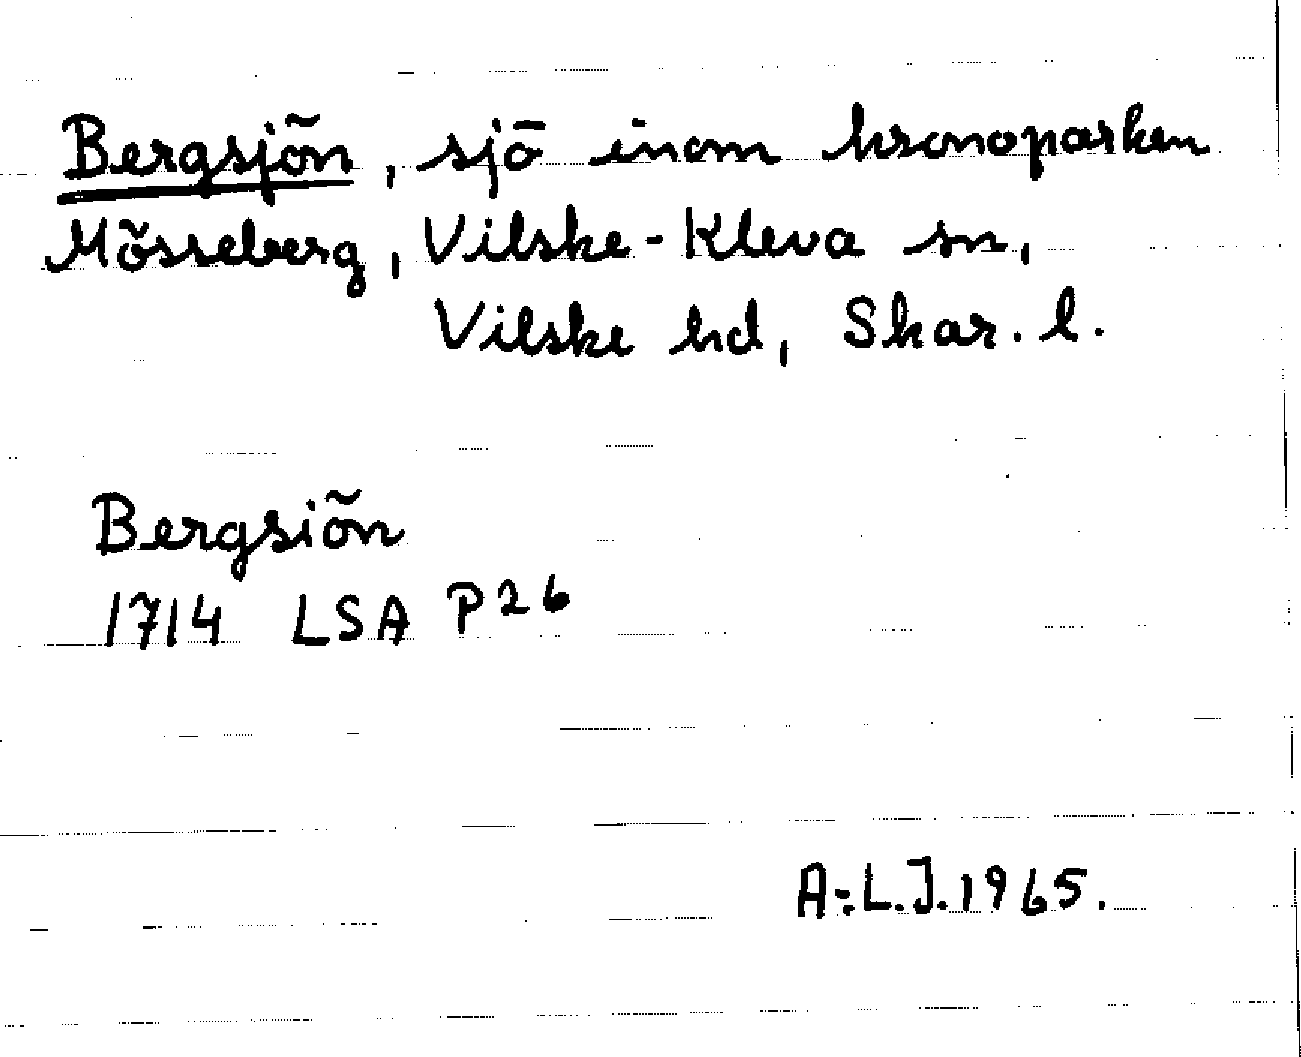 Bergsjön, sjö inom kronoparken
Mösseberg, Vilske-Kleva sn,
Vilske hd, Skar. l.
Bergsiön
1714 LSA P26
A-L.J. 1965.